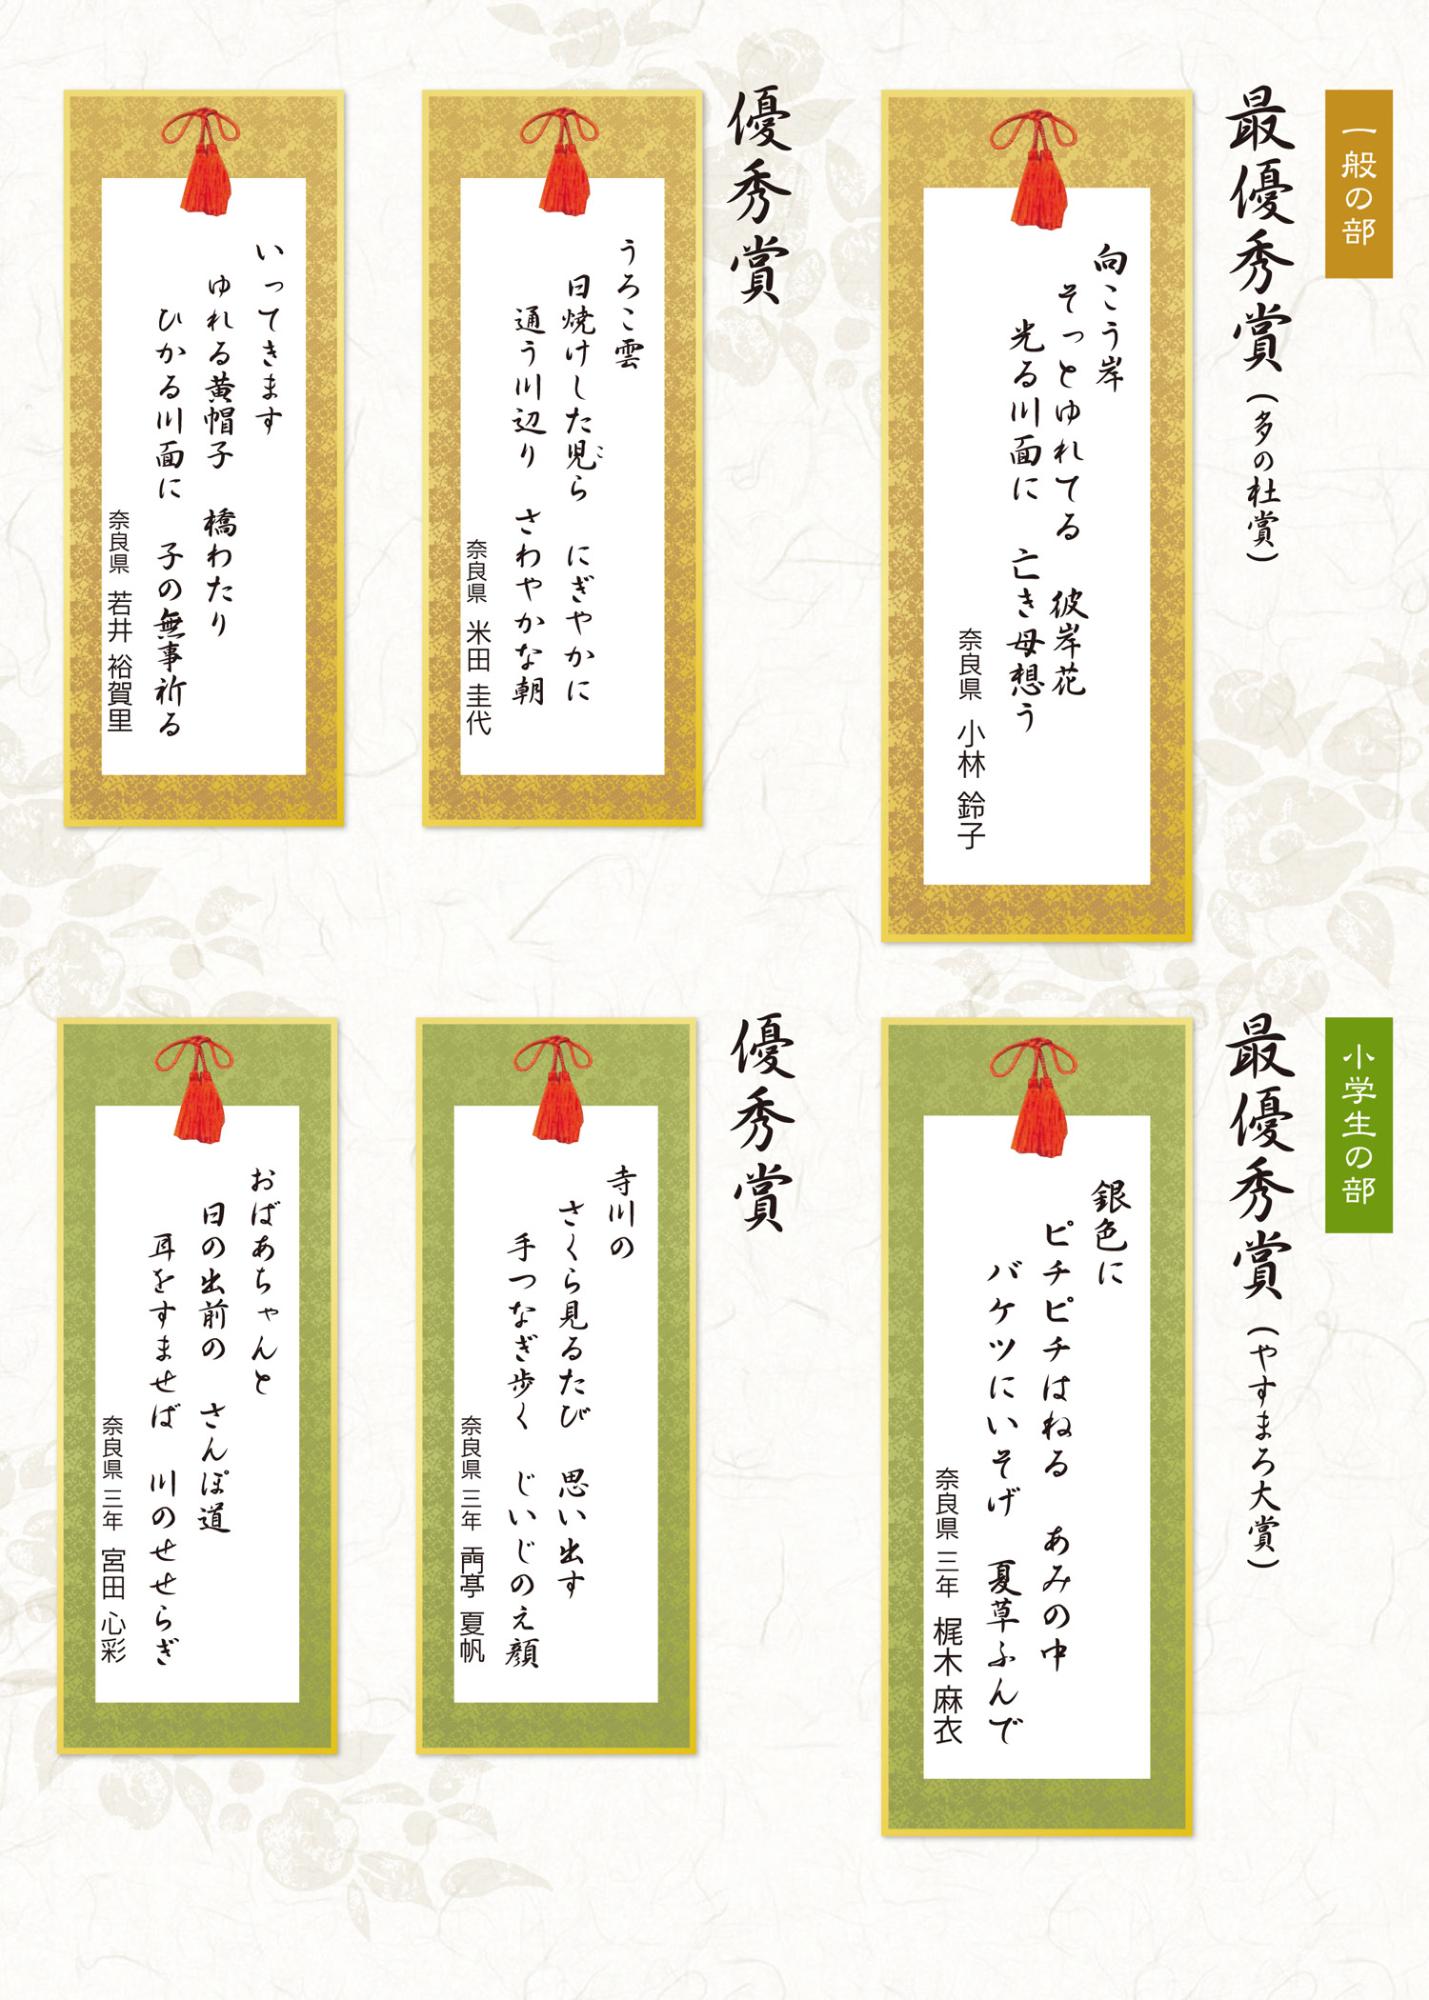 一般の部
最優秀賞（多の杜賞）
向こう岸
そっとゆれてる　彼岸花
光る川面に　亡き母想う
奈良県　小林　鈴子
優秀賞
うろこ雲
日焼けした児ら　にぎやかに
こ
通う川辺り　さわやかな朝
奈良県　米田　圭代
いってきます
ゆれる黄帽子　橋わたり
ひかる川面に　子の無事祈る
奈良県　若井　裕賀里
小学生の部
最優秀賞（やすまろ大賞）
銀色に
ピチピチはねる　あみの中
バケツにいそげ　夏草ふんで
奈良県　三年　梶木　麻衣
優秀賞
寺川の
さくら見るたび　思い出す
手つなぎ歩く　じいじのえ顔
奈良県　三年　両亭　夏帆
おばあちゃんと
日の出前の　さんぽ道
耳をすませば　川のせせらぎ
奈良県　三年　宮田　心彩